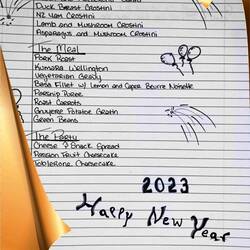 Duck Breast Crostini
NZ Ham Crostini
Lamb and Mushroom Crostini
Asparagus and Mushroom Crostini
The Meal
Pork Roast
Kumara Wellington
Vegetarian Gravy
Bass Fillet w/ Lemon and Caper Beurre Noisette
Parsnip Puree
Roast Carrots
Gruyere Potatoe Gratin
Green Beans
The Party
Cheese & Snack Spread
Passion Fruit Cheesecake
Toblerone Cheesecake
2023
Happy New Year